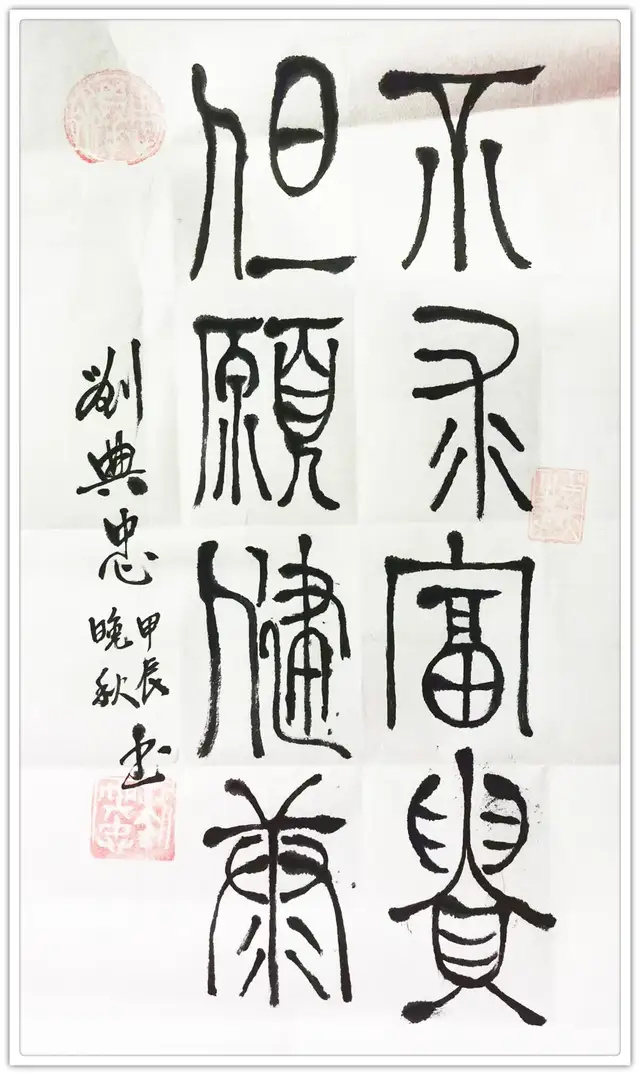 不求富貴
但願健康
甲辰
晚秋
劉典忠
书